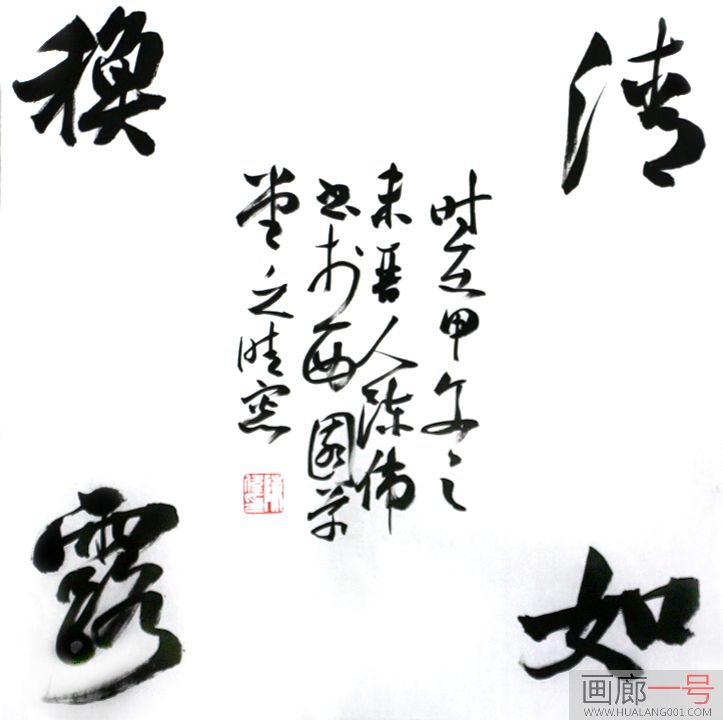 清如
露
时在甲午之
末晋人陈伟
书於西园草
堂之晴窗
画廊一号
WWW.HUALANG001.COM